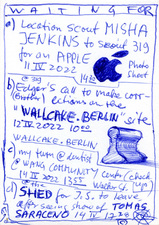 WAITING FOR
a) Location scout MISHA
JENKINS to scout 319
for an APPLE
11 IV 2022 14 20
Photo
Shoot
@ 319
b) Edgar's call to make corr-
(Brothn) echions on the
"WALLCAKE.BERLIN" site
12 IV 2022 10 00
WALLCAKE.BERLIN
c) my turn @ dentist
@ WANG COMMUNITY center/check
14 IV 2022 13 55 up
d) SHED for J.S. to leave
after seeing show of TOMAS
SARACENO 14 IV